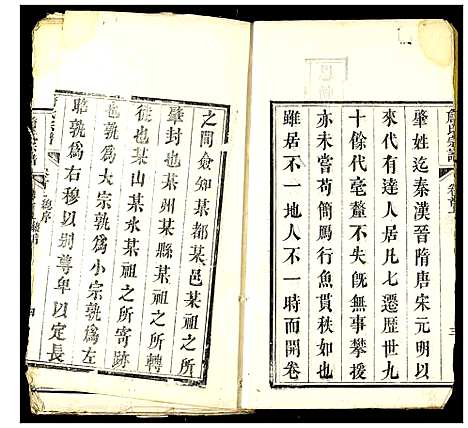 肇姓迄秦漢晉隋唐宋元明以
來代有達人居凡七遷歷世九
十餘代毫釐不失旣無事攀援
亦未嘗苟簡馬行魚貫秩如也
雖居不一地人不一時而開卷
之間僉知某都某邑某祖之所
肇封也某州某縣某祖之所轉
徙也某山某水某祖之所寄跡
也孰爲大宗孰爲小宗孰爲左
昭孰爲右穆以別尊卑以定長